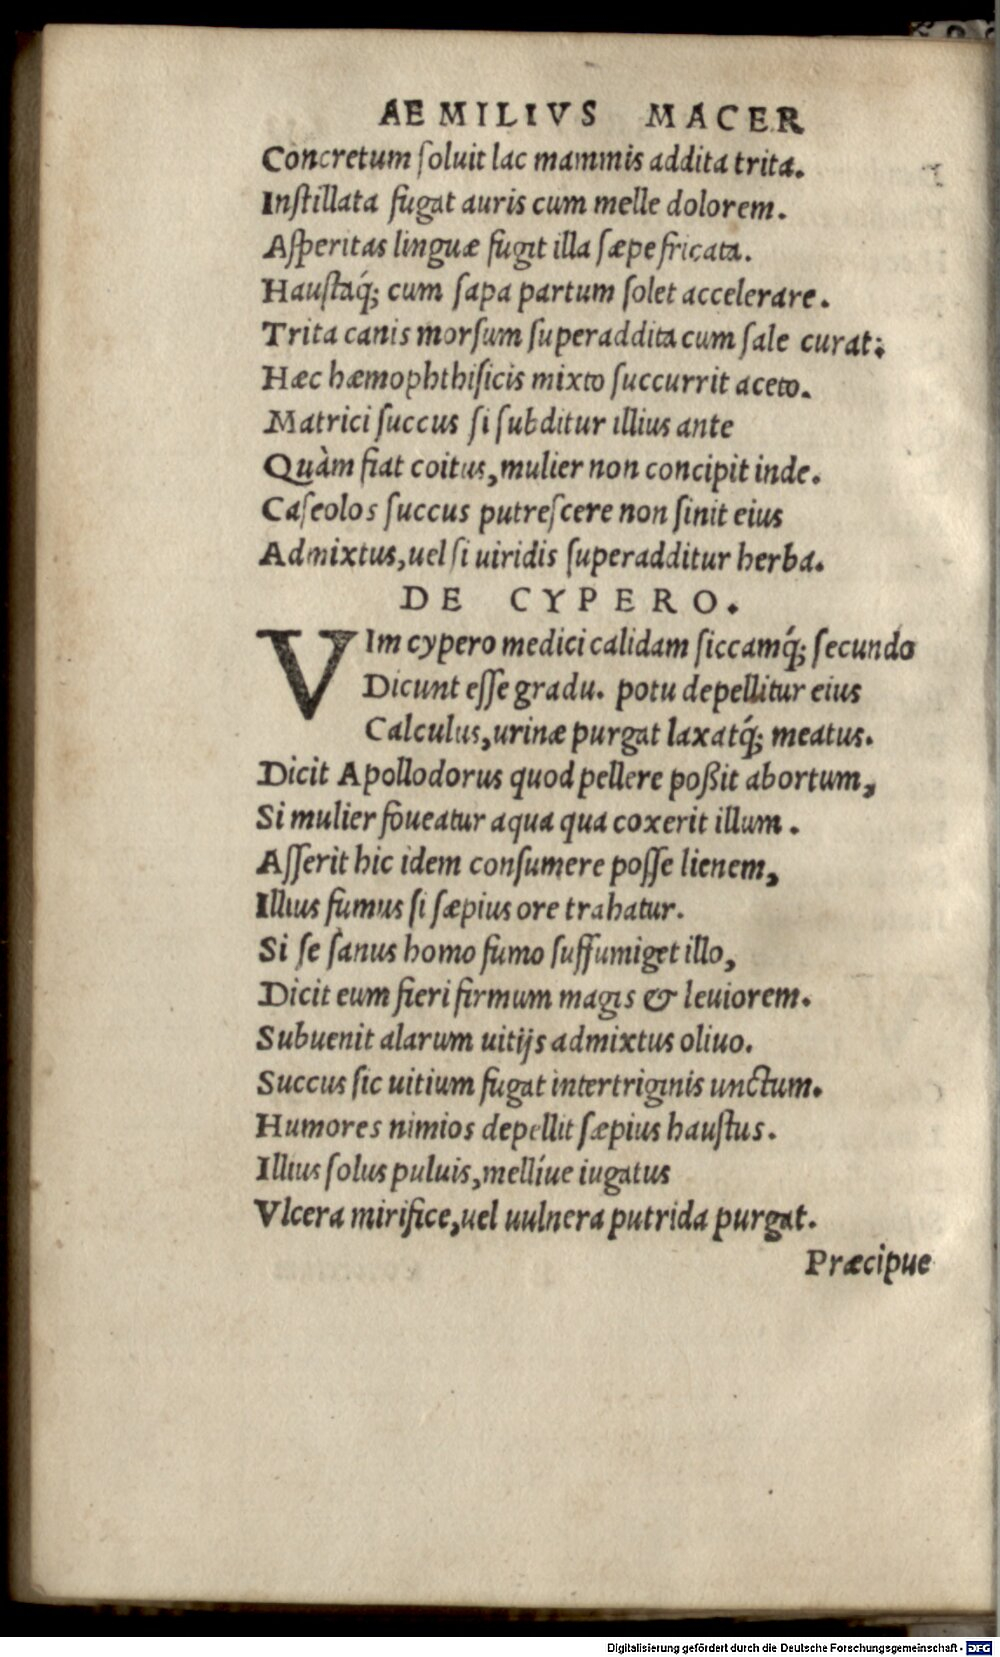 AEMILIVS MACER
Concretum ſoluit lac mammis addita trita.
Inſtillata fugat auris cum melle dolorem.
Aſperitas linguæ fugit illa ſæpe fricata.
Hauſtaq́; cum ſapa partum ſolet accelerare.
Trita canis morſum ſuperaddita cum ſale curat:
Hæc hæmophthiſicis mixto ſuccurrit aceto.
Matrici ſuccus ſi ſubditur illius ante
Quàm fiat coitus, mulier non concipit inde.
Caſeolos ſuccus putreſcere non ſinit eius
Admixtus, uel ſi uiridis ſuperadditur herba.
DE CYPERO.
VIm cypero medici calidam ſiccamq́; ſecundo
Dicunt eſſe gradu. potu depellitur eius
Calculus, urinæ purgat laxatq́; meatus.
Dicit Apollodorus quod pellere poßit abortum,
Si mulier foueatur aqua qua coxerit illum.
Aſſerit hic idem conſumere poſſe lienem,
Illius fumus ſi ſæpius ore trahatur.
Si ſe ſanus homo fumo ſuffumiget illo,
Dicit eum fieri firmum magis & leuiorem.
Subuenit alarum uitijs admixtus oliuo.
Succus ſic uitium fugat intertriginis unctum.
Humores nimios depellit ſæpius hauſtus.
Illius ſolus puluis, mellíue iugatus
Vlcera mirifice, uel uulnera putrida purgat.
Præcipue
Digitalisierung gefördert durch die Deutsche Forschungsgemeinschaft - DFG